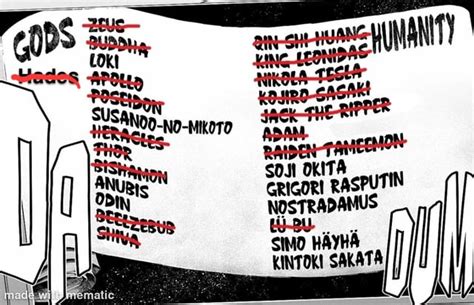 GODS
ZEUS
BUDDHA
LOKI
Hades
APOLLO
POSEIDON
SUSANOO-NO-MIKOTO
HERACLES
THOR
BISHAMON
ANUBIS
ODIN
BEELZEBUB
SHIVA
HUMANITY
QIN SHI HUANG
KING LEONIDAS
NIKOLA TESLA
KOJIRO SASAKI
JACK THE RIPPER
ADAM
RAIDEN TAMEEMON
SOJI OKITA
GRIGORI RASPUTIN
NOSTRADAMUS
LÜ BU
SIMO HÄYHÄ
KINTOKI SAKATA
DA
DUM
made with mematic